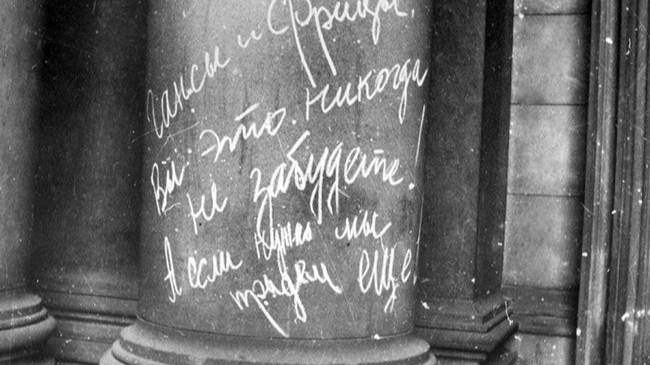 Гансы и Фрицы.
Вы это никогда
не забудете!
А если нужно мы
придем ещё!